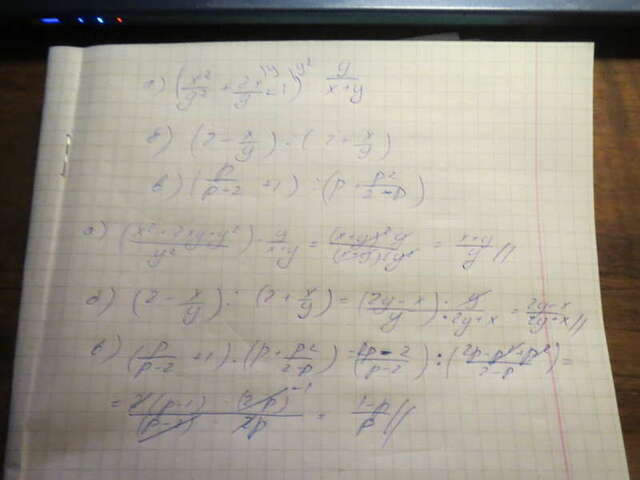 а) (x²/y² + 2x/y + 1) · y/(x+y)
б) (2 - x/y) : (2 + x/y)
в) (p/(p-2) + 1) : (p + p²/(2-p))
а) ((x²+2xy+y²)/y²) · y/(x+y) = (x+y)² y/((x+y) y²) = (x+y)/y //
б) (2 - x/y) : (2 + x/y) = ((2y-x)/y) · y/(2y+x) = (2y-x)/(2y+x) //
в) (p/(p-2) + 1) : (p + p²/(2-p)) = (2p-2)/(p-2) : ((2p-p²+p²)/(2-p)) =
= 2(p-1) · (2-p)⁻¹/((p-2) · 2p) = (1-p)/p //